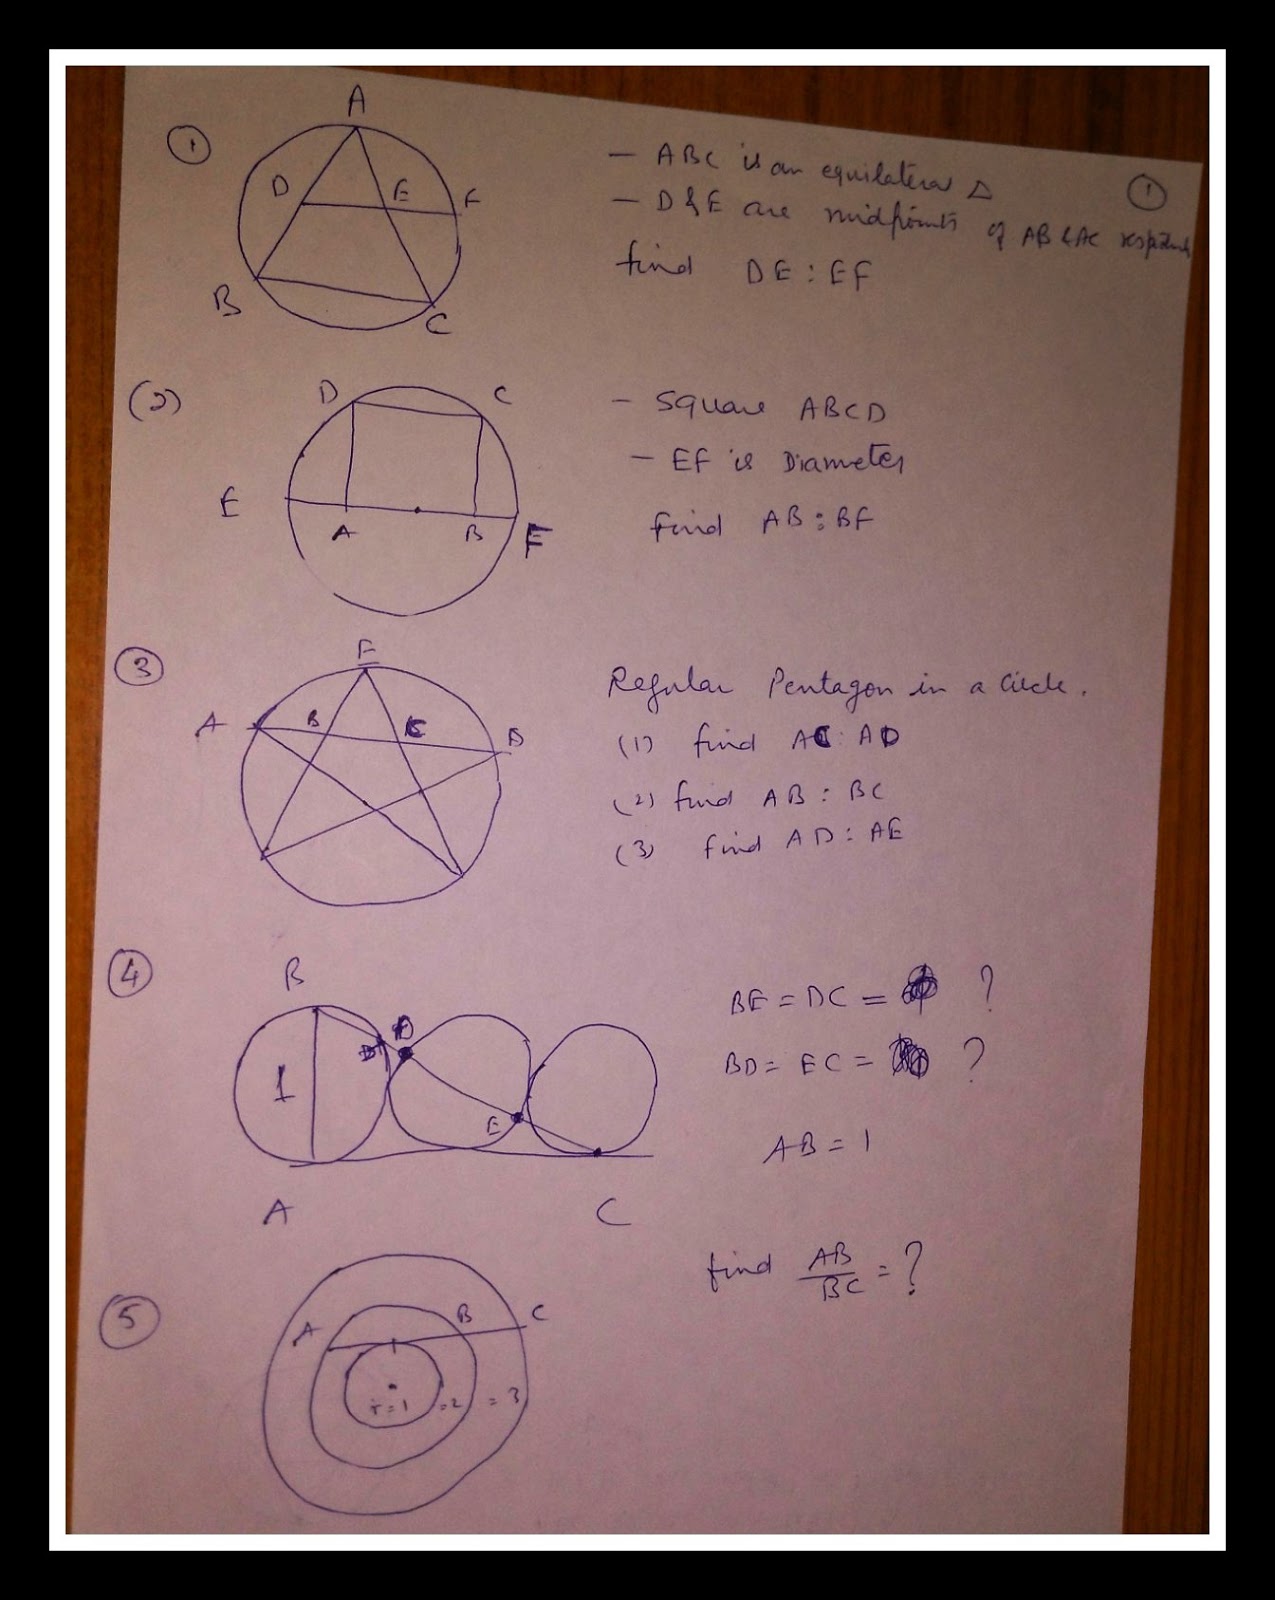 ①
A
D
E
F
B
C
— ABC is an equilateral Δ
①
— D & E are midpoints of AB & AC
find DE : EF
(2)
D
C
E
A
B
F
— Square ABCD
— EF is Diameter
find AB : BF
③
E
A
B
C
D
Regular Pentagon in a Circle.
(1) find AC : AD
(2) find AB : BC
(3) find AD : AE
④
B
D
1
E
A
C
BE = DC = ?
BD = EC = ?
AB = 1
find AB/BC = ?
⑤
A
B
C
r=1
=2
=3